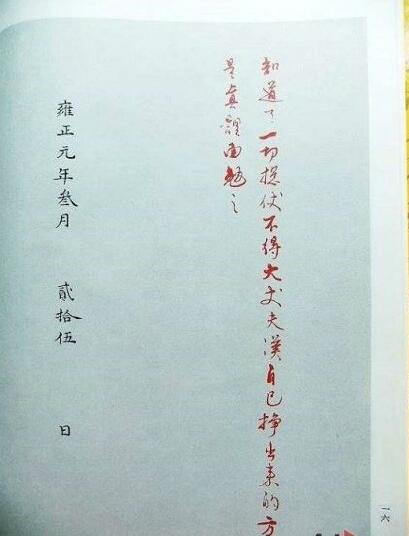 知道了一切捴仗不得大丈夫漢自己掙出来的方
是真體面勉之
雍正元年叁月 貳拾伍 日
一六